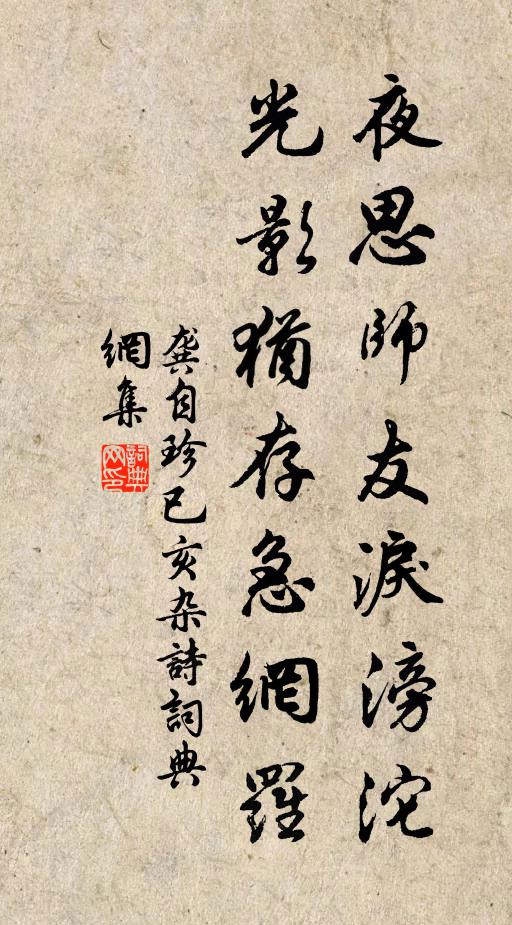 夜思師友淚滂沱
光影猶存急網羅
龔自珍己亥杂詩詞典
網集
詞典
网印